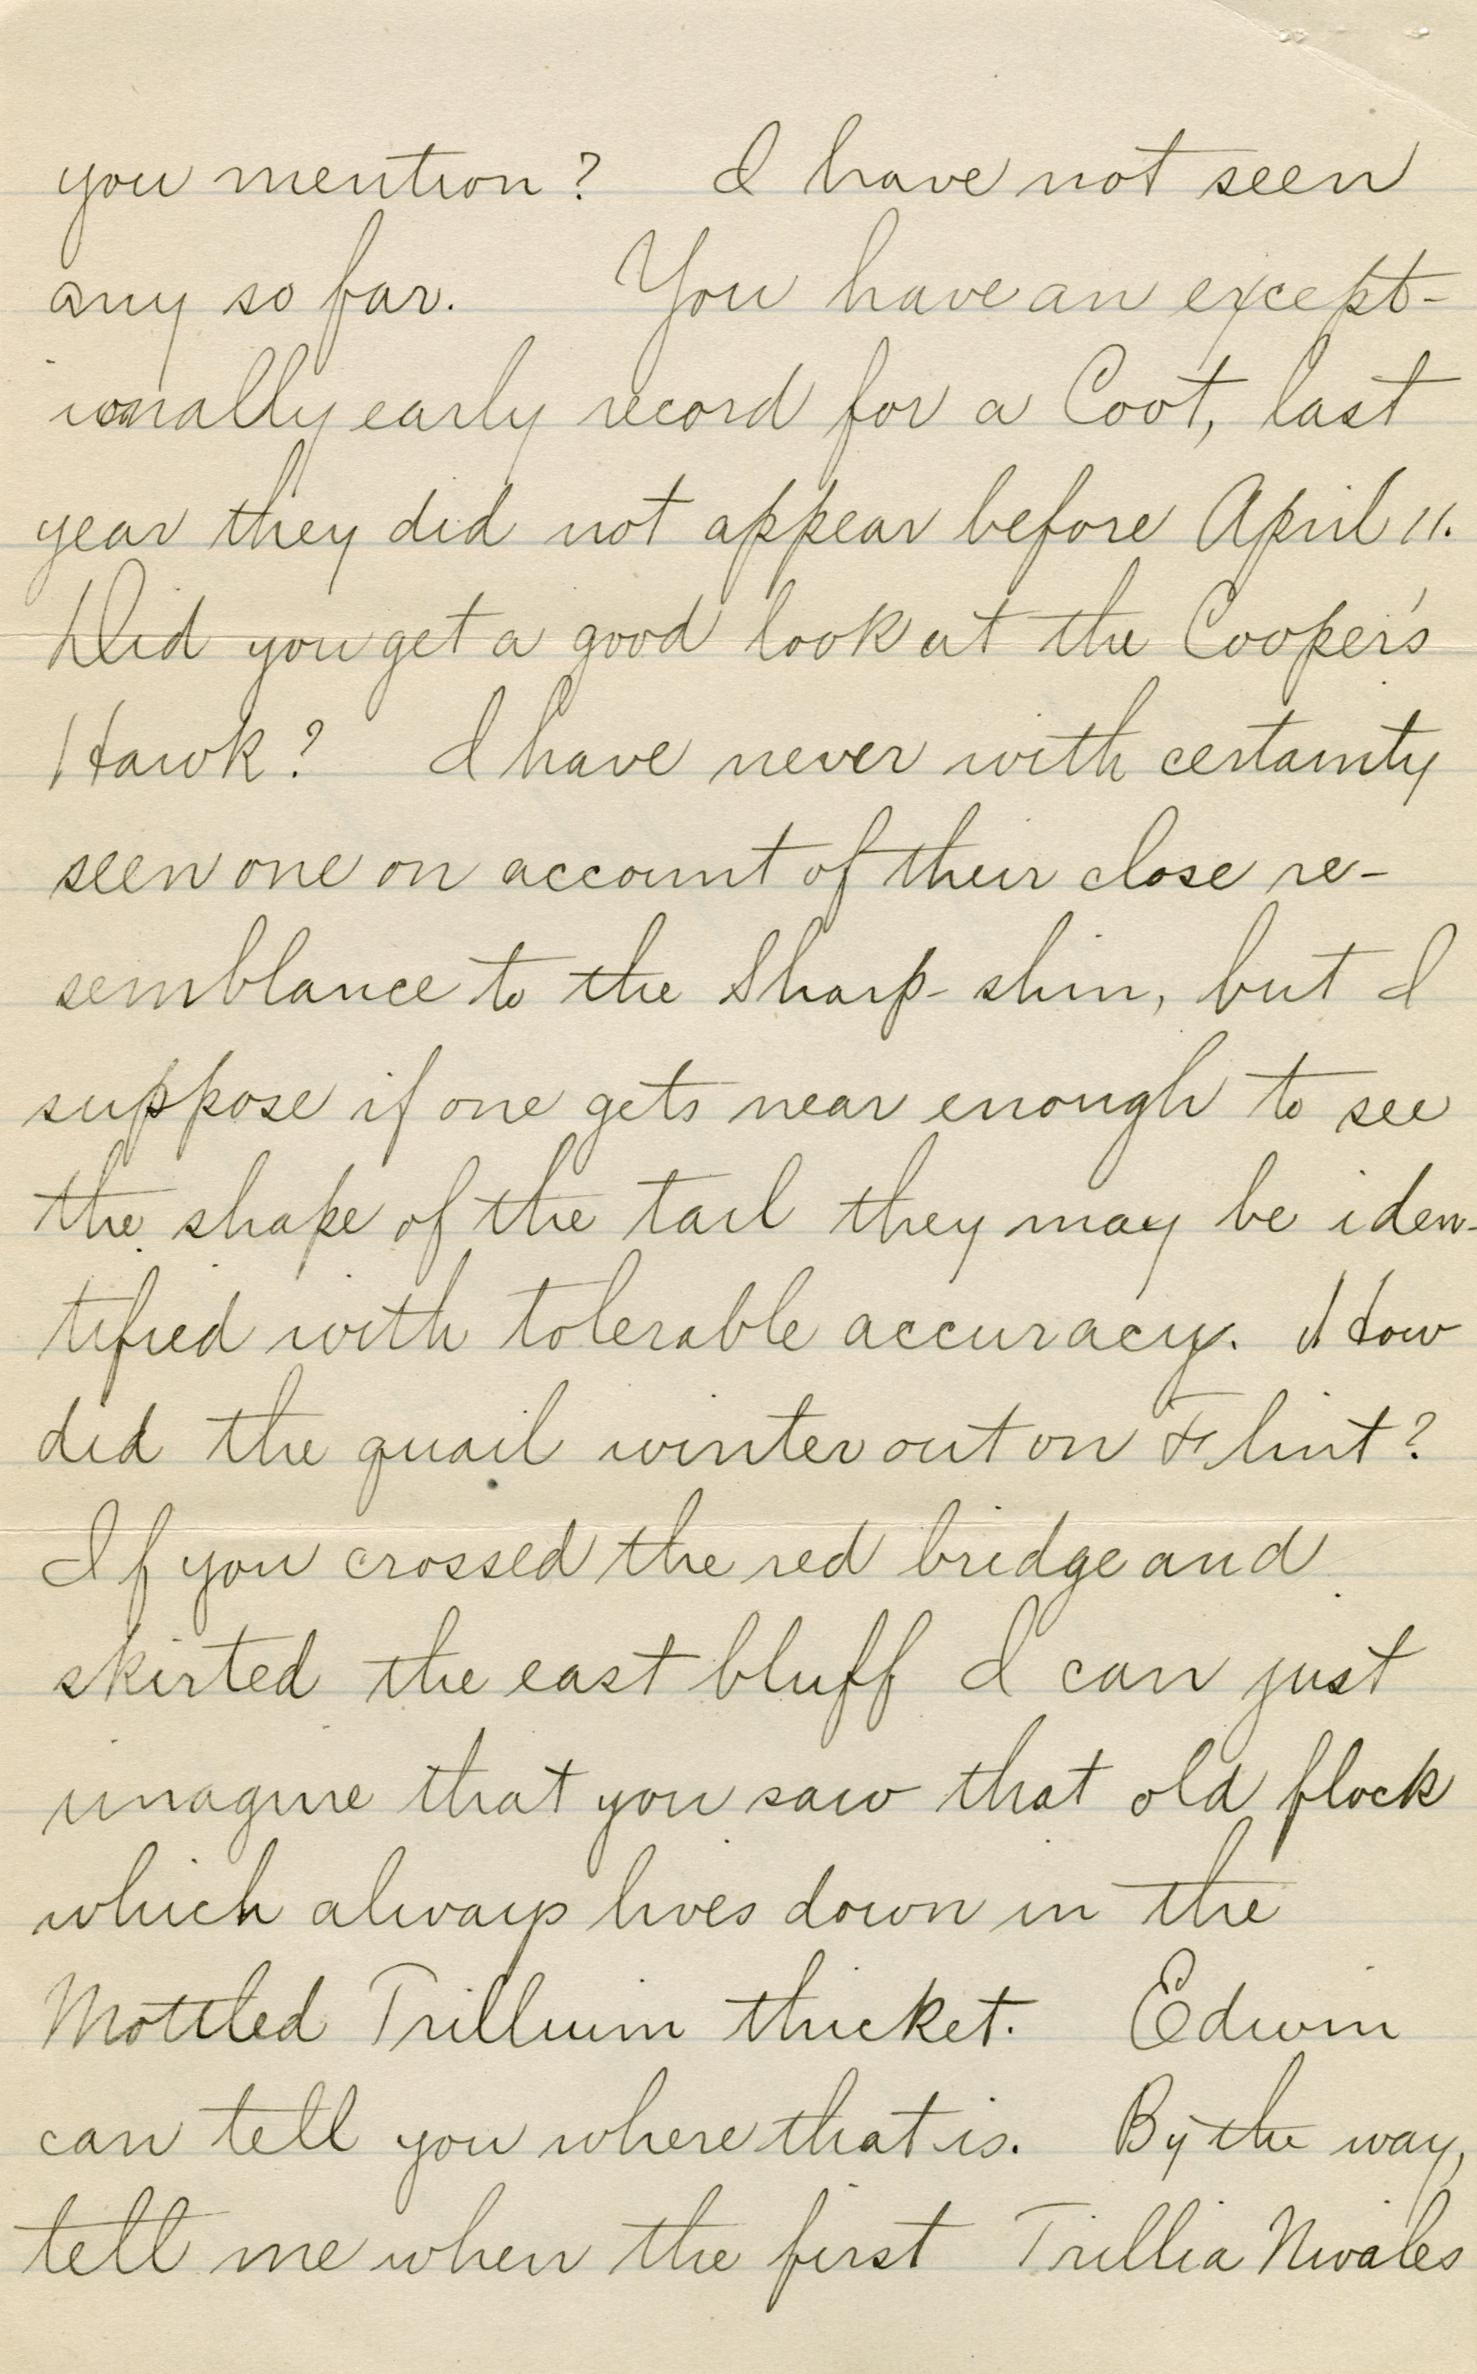 you mention? I have not seen
any so far. You have an except-
ionally early record for a Coot, last
year they did not appear before April 11.
Did you get a good look at the Cooper's
Hawk? I have never with certainty
seen one on account of their close re-
semblance to the Sharp-shin, but I
suppose if one gets near enough to see
the shape of the tail they may be iden-
tified with tolerable accuracy. How
did the quail winter out on Flint?
If you crossed the red bridge and
skirted the east bluff I can just
imagine that you saw that old flock
which always lives down in the
Mottled Trillium thicket. Edwin
can tell you where that is. By the way,
tell me when the first Trillia Nivales